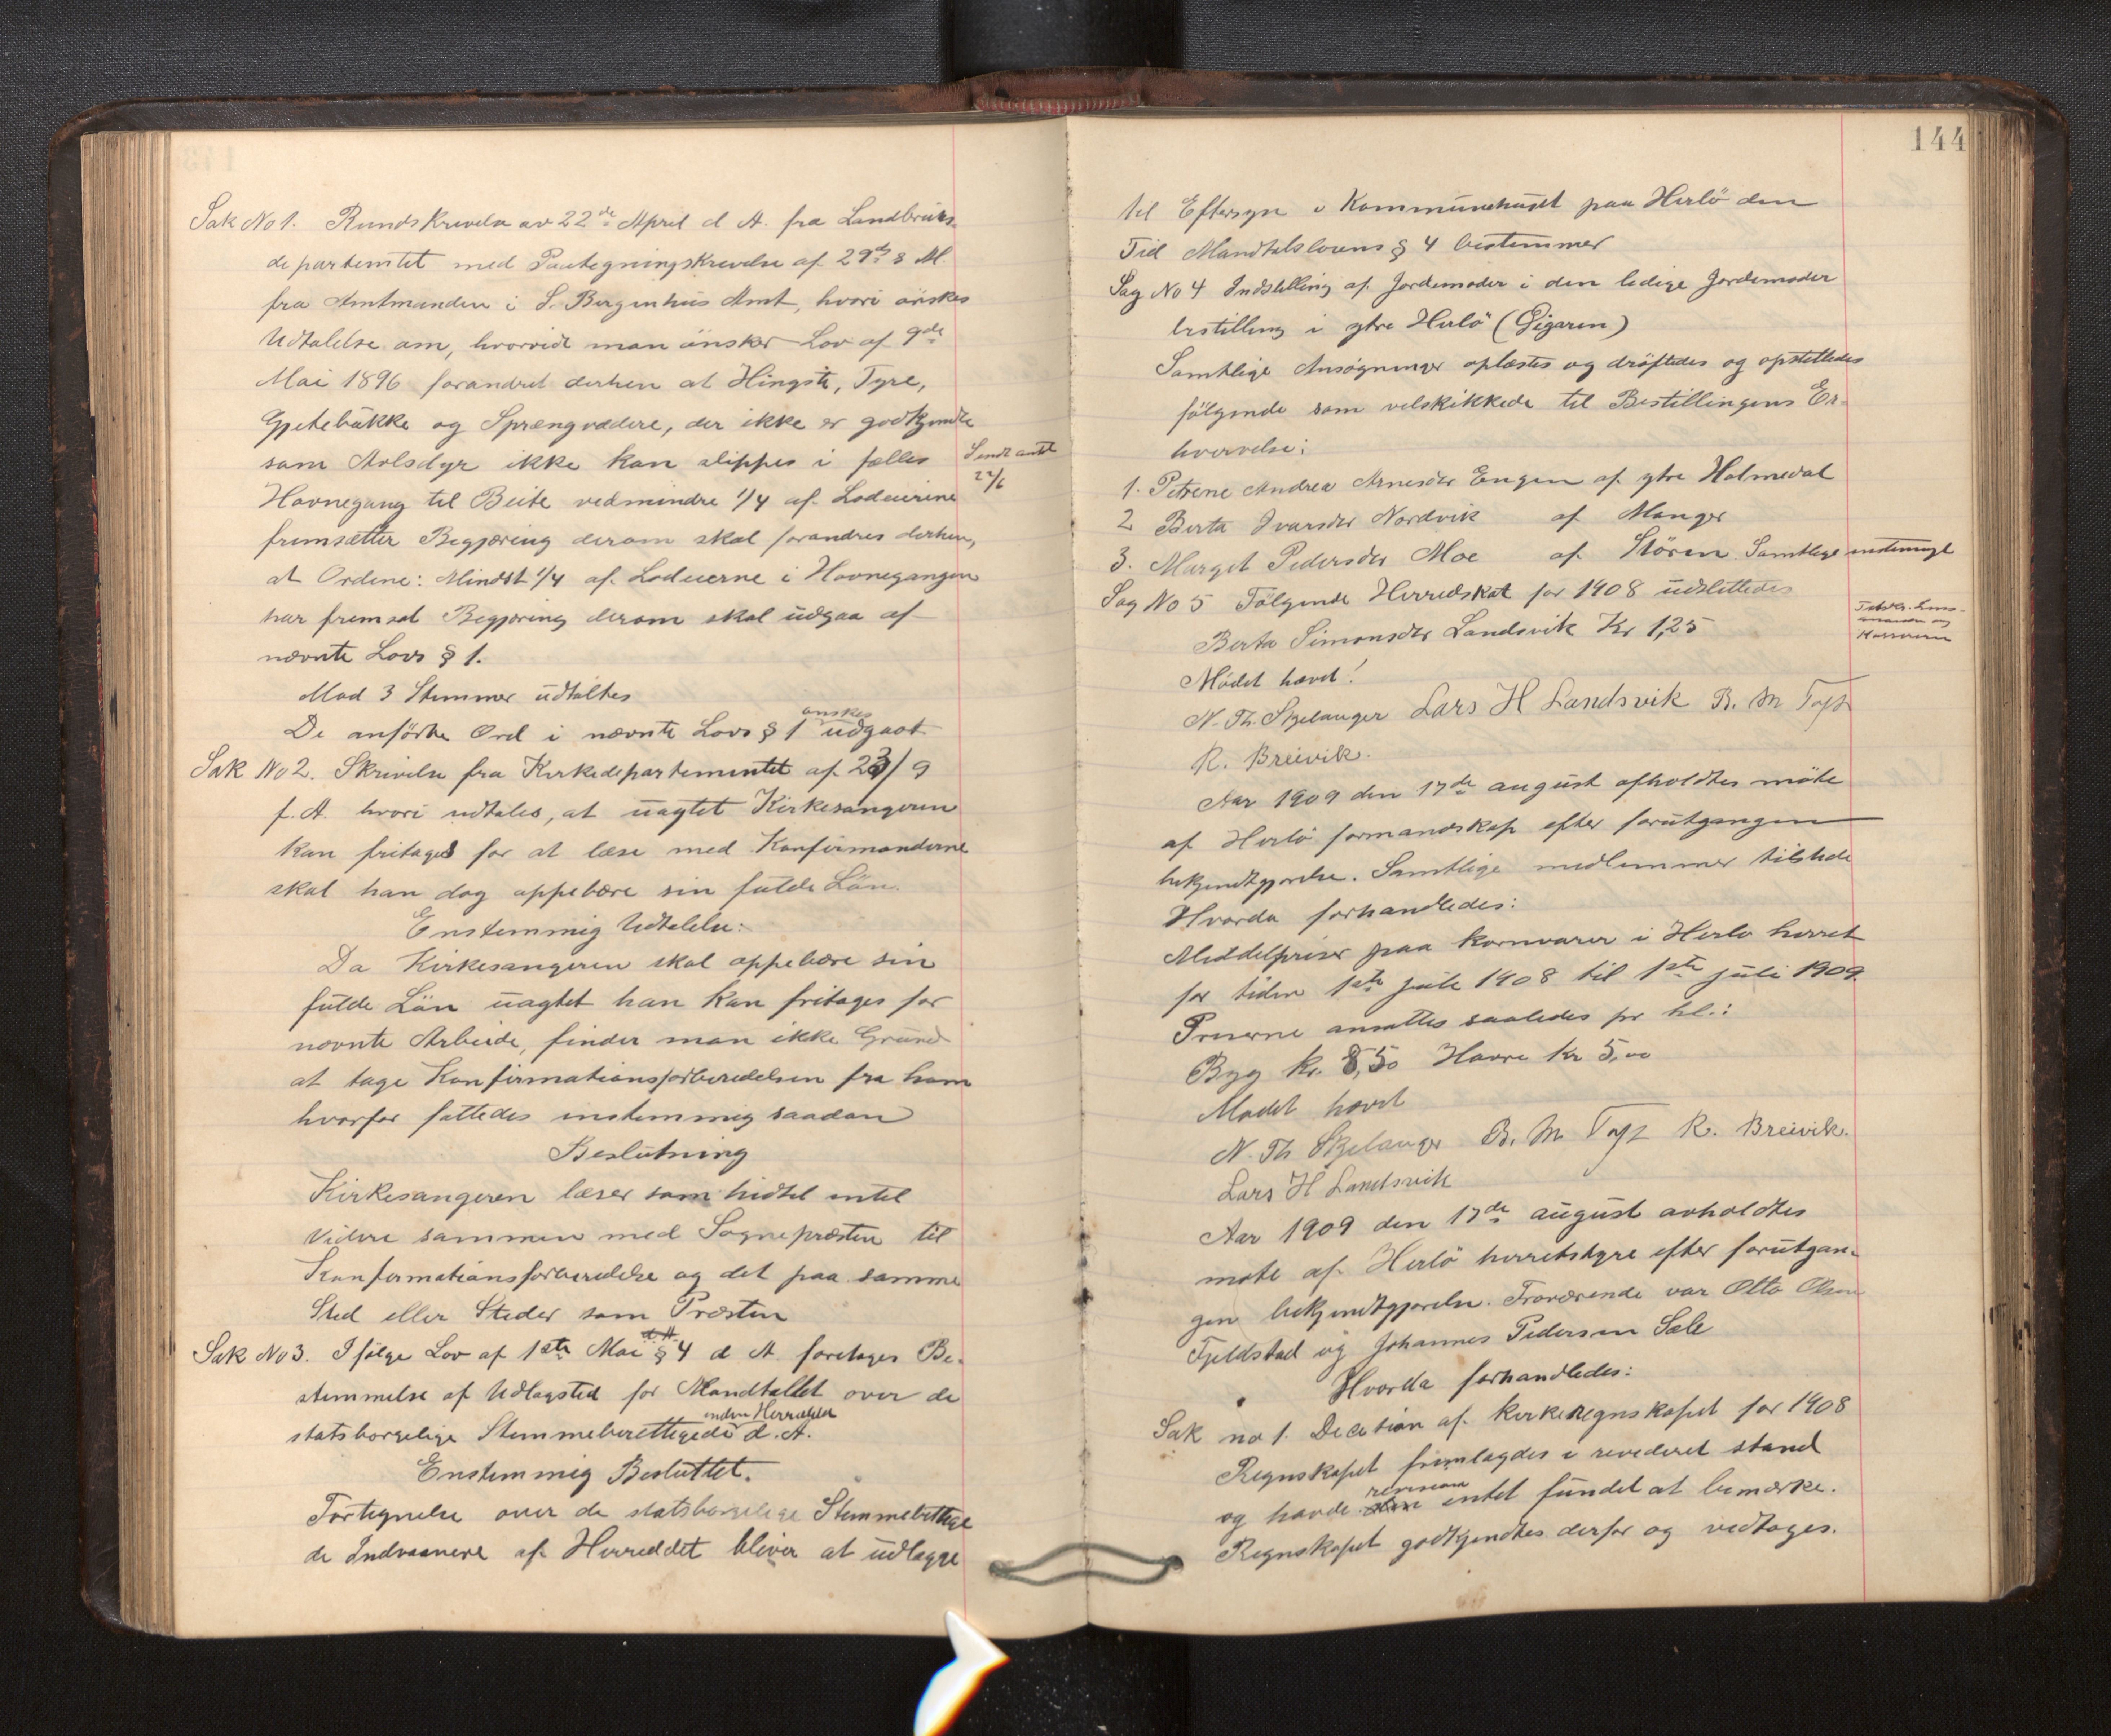 Sak No 1. Rundskrivelse av 22de April d A. fra Landbruks-
departemtet med Paategningskrivelse af 29de s M.
fra Amtmanden i S. Bergenhus Amt, hvori önskes
Udtalelse om, hvorvidt man önsker Lov af 9de
Mai 1896 forandret derhen at Hingste, Tyre,
Gjetebukke og Sprængvædere, der ikke er godkjendte
som Avlsdyr ikke kan slippes i fælles
Havnegang til Beite vedmindre 1/4 af Lodeierne
Sendt amtet
22/6
fremsætter Begjæring derom skal forandres derhen,
at Ordene: Mindst 1/4 af Lodeierne i Havnegangen
har fremsat Begjæring derom skal udgaa af
nævnte Lovs § 1.
Mod 3 Stemmer udtaltes
De anförte Ord i nævnte Lovs § 1 önskes udgaat
Sak No 2. Skrivelse fra Kirkedepartementet af 23/9
f. A. hvori udtales, at uagtet Kirkesangeren
kan fritages for at læse med Konfirmanderne
skal han dog oppebære sin fulde Lön.
Enstemmig Udtalelse:
Da Kirkesangeren skal oppebære sin
fulde Lön uagtet han kan fritages for
nævnte Arbeide, finder man ikke Grund
at tage Konfirmationsforberedelsen fra ham
hvorfor fattedes enstemmig saadan
Beslutning
Kirkesangeren læser som hidtil intil
Videre sammen med Sognepræsten til
Konfirmationsforberedelse og det paa samme
Sted eller Steder som Præsten
Sak No 3. Ifölge Lov af 1ste Mai § 4 d A. foretages Be-
stemmelse af Udlagsted for Mandtallet over de
statsborgelige Stemmeberettigede inden Herredet d. A.
Enstemmig Besluttet.
Fortegnelse over de statsborgelige Stemmebettige
de Indvaanere af Herreddet bliver at udlægge
144
til Eftersyn i Kommunehuset paa Herlö den
Tid Mandtalslovens § 4 bestemmer
Sag No 4 Indstilling af Jordemoder i den ledige Jordemoder
bestilling i ytre Herlö (Gigaren)
Samtlige Ansögninger oplæstes og dröftedes og opstilledes
fölgende som velskikkede til Bestillingens Er-
hvervelse:
1. Petrene Andrea Arnesdtr Engen af ytre Holmedal
2 Berta Ivarsdtr Nordvik af Manger
3. Marget Pedersdtr Moe af Stören. Samtlige enstemmigt
Sag No 5 Fölgende Herredskat for 1908 udslettedes
Berta Simonsdtr Landsvik Kr 1,25
Mödet hævet!
N. Th. Skjelanger Lars H Landsvik B. M Toft
R. Breivik.
Aar 1909 den 17de august afholdtes möte
af Herlö formandskap efter forutgangen
bekjendtgjørelse. Samtlige medlemmer tilstede
Hvorda forhandledes:
Middelpriser paa kornvarer i Herlo herret
for tiden 1ste juli 1908 til 1ste juli 1909.
Priserne ansattes saaledes pr hl.:
Byg kr. 8,50 Havre kr 5,00
Mødet hævet
N. Th Skjelanger B. M Toft R. Breivik.
Lars H Landsvik
Aar 1909 den 17de august avholdtes
møte af Herlö herretstyre efter forutgan-
gen bekjendtgjørelse. Fraværende var Otto Olsen
Fjeldstad og Johannes Pedersen Sæle
Hvorda forhandledes:
Sak no 1. Decition af kirkeregnskapet for 1908
Regnskapet fremlagdes i revideret stand
og havde revisionen intet fundet at bemærke.
Regnskapet godkjendtes derfor og vedtages.